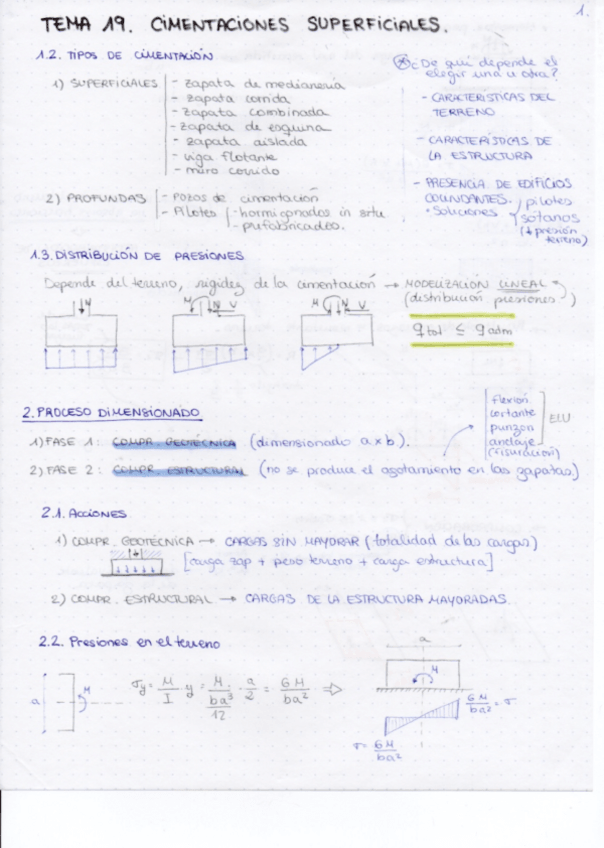 1.
TEMA 19. CIMENTACIONES SUPERFICIALES.
1.2. TIPOS DE CIMENTACIÓN
1) SUPERFICIALES
- zapata de medianería
- zapata corrida
- zapata combinada
- zapata de esquina
- zapata aislada
- viga flotante
- muro corrido
2) PROFUNDAS
- Pozos de cimentación
- Pilotes
- hormigonados in situ
- prefabricados.
¿De qué depende el
elegir una u otra?
- CARACTERISTICAS DEL
TERRENO
- CARACTERÍSTICAS DE
LA ESTRUCTURA
- PRESENCIA DE EDIFICIOS
COLINDANTES.
• Soluciones
pilotes
sótanos
(↓ presión
terreno)
1.3. DISTRIBUCIÓN DE PRESIONES
Depende del terreno, rigidez de la cimentación → MODELIZACIÓN LINEAL
(distribución presiones)
N
M N V
M N V
q tol ≤ q adm
2. PROCESO DIMENSIONADO
flexión
cortante
punzon
anclaje
(fisuración)
ELU
1) FASE 1: COMPR. GEOTÉCNICA (dimensionado a x b).
2) FASE 2: COMPR. ESTRUCTURAL (no se produce el agotamiento en las zapatas)
2.1. Acciones
1) COMPR. GEOTÉCNICA → CARGAS SIN MAYORAR (totalidad de las cargas)
[carga zap + peso terreno + carga estructura]
2) COMPR. ESTRUCTURAL → CARGAS DE LA ESTRUCTURA MAYORADAS.
2.2. Presiones en el terreno
a
M
σy = M/I y = M/(ba³/12) · a/2 = 6M/ba² ⇒
a
M
6M/ba² = σ
σ = 6M/ba²